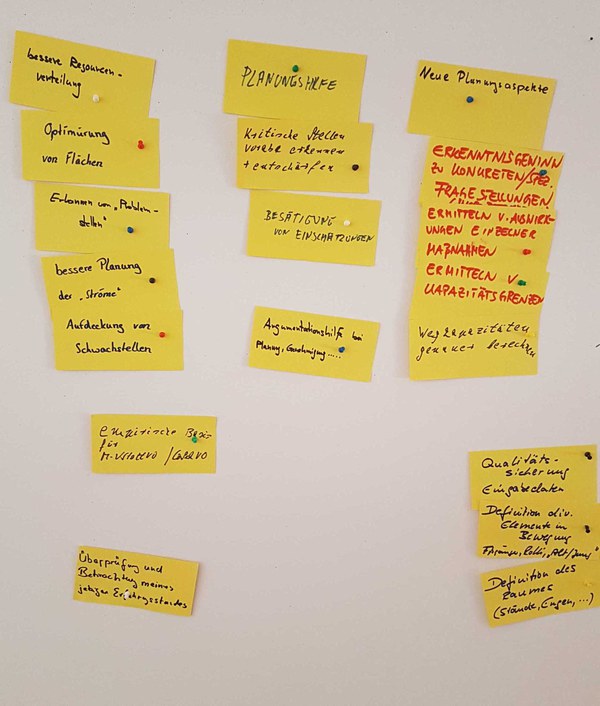 bessere Resourcen-
verteilung
Optimürung
von Flächen
Erkennen von "Problem-
stellen"
bessere Planung
der "Ströme"
Aufdeckung von
Schwachstellen
empirische Basis
für
M-VStättVO /
Überprüfung und
Betrachtung meines
jetzigen Erfahrungsstandes
PLANUNGSHILFE
Kritische Stellen
vorab erkennen
+ entschärfen
BESTÄTIGUNG
VON EINSCHÄTZUNGEN
Argumentationshilfe bei
Planung, Genehmigung.....
Neue Planungsaspekte
ERKENNTNISGEWINN
ZU KONKRETEN/SPEZ.
FRAGESTELLUNGEN
ERMITTELN V. AUSWIRK-
UNGEN EINZELNER
MAßNAHMEN
ERMITTELN V.
KAPAZITÄTSGRENZEN
Wegkapazitäten
genauer berechnen
Qualitäts-
sicherung
Eingabedaten
Definition div.
Elemente in
Bewegung
"Alt/Jung"
Definition des
Raumes
(Stände, Engen, ...)